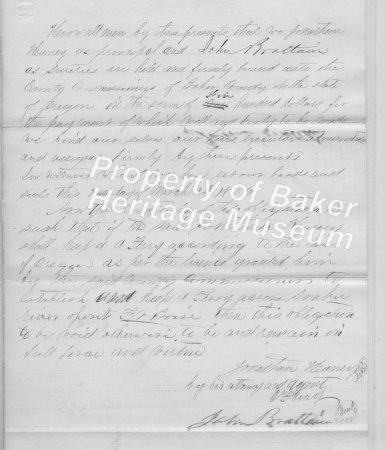 Know all men by these presents that we Jonathan
Keeney as principal and John Brattain
as sureties are held and firmly bound unto the
County Commissioners of Baker County in the state
of Oregon in the sum of five hundred dollars for
the payment of which well and truly to be made
we bind our selves our heirs executors administrators
and assigns firmly by these presents
In witness we set our hands and
seals this day of
such that if the
shall keep a Ferry according to the
of Oregon as per the licence granted him
by the said County Commissioners to
establish and keep a Ferry across Snake
River oposit Ft Boise then this obligation
to be void otherwise to be and remain in
full force and virtue
Jonathan Keeney
by his attorney and agent
John Brattain
Property of Baker
Heritage Museum